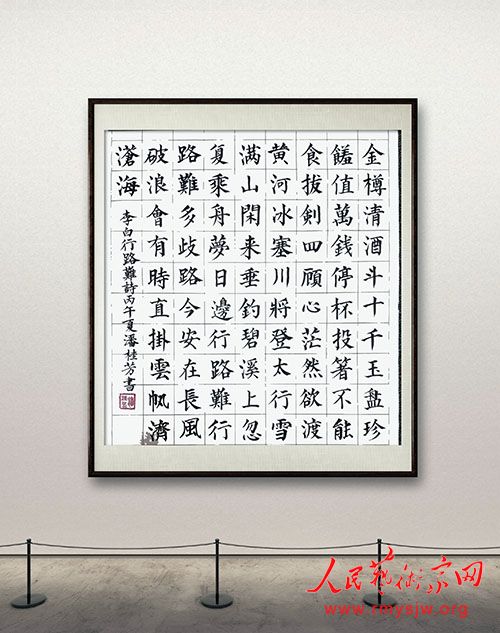 金樽清酒斗十千玉盘珍
饈值萬錢停杯投箸不能
食拔劍四顧心茫然欲渡
黄河冰塞川將登太行雪
满山閑来垂釣碧溪上忽
复乘舟夢日邊行路難行
路難多歧路今安在長風
破浪會有時直掛雲帆濟
滄海
李白行路難詩丙午夏潘桂芳書
人民藝術家网
www.rmysjw.org